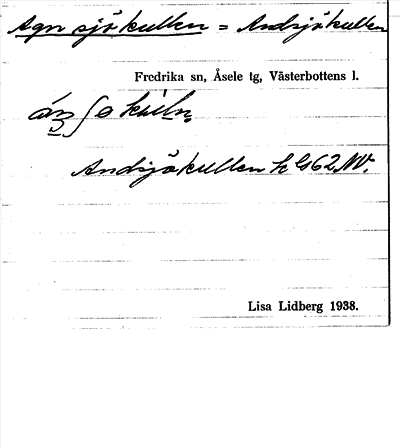 Agnsjökullen = Andsjökullen
Fredrika sn, Åsele tg, Västerbottens l.
Andsjökullen k G62NV.
Lisa Lidberg 1938.